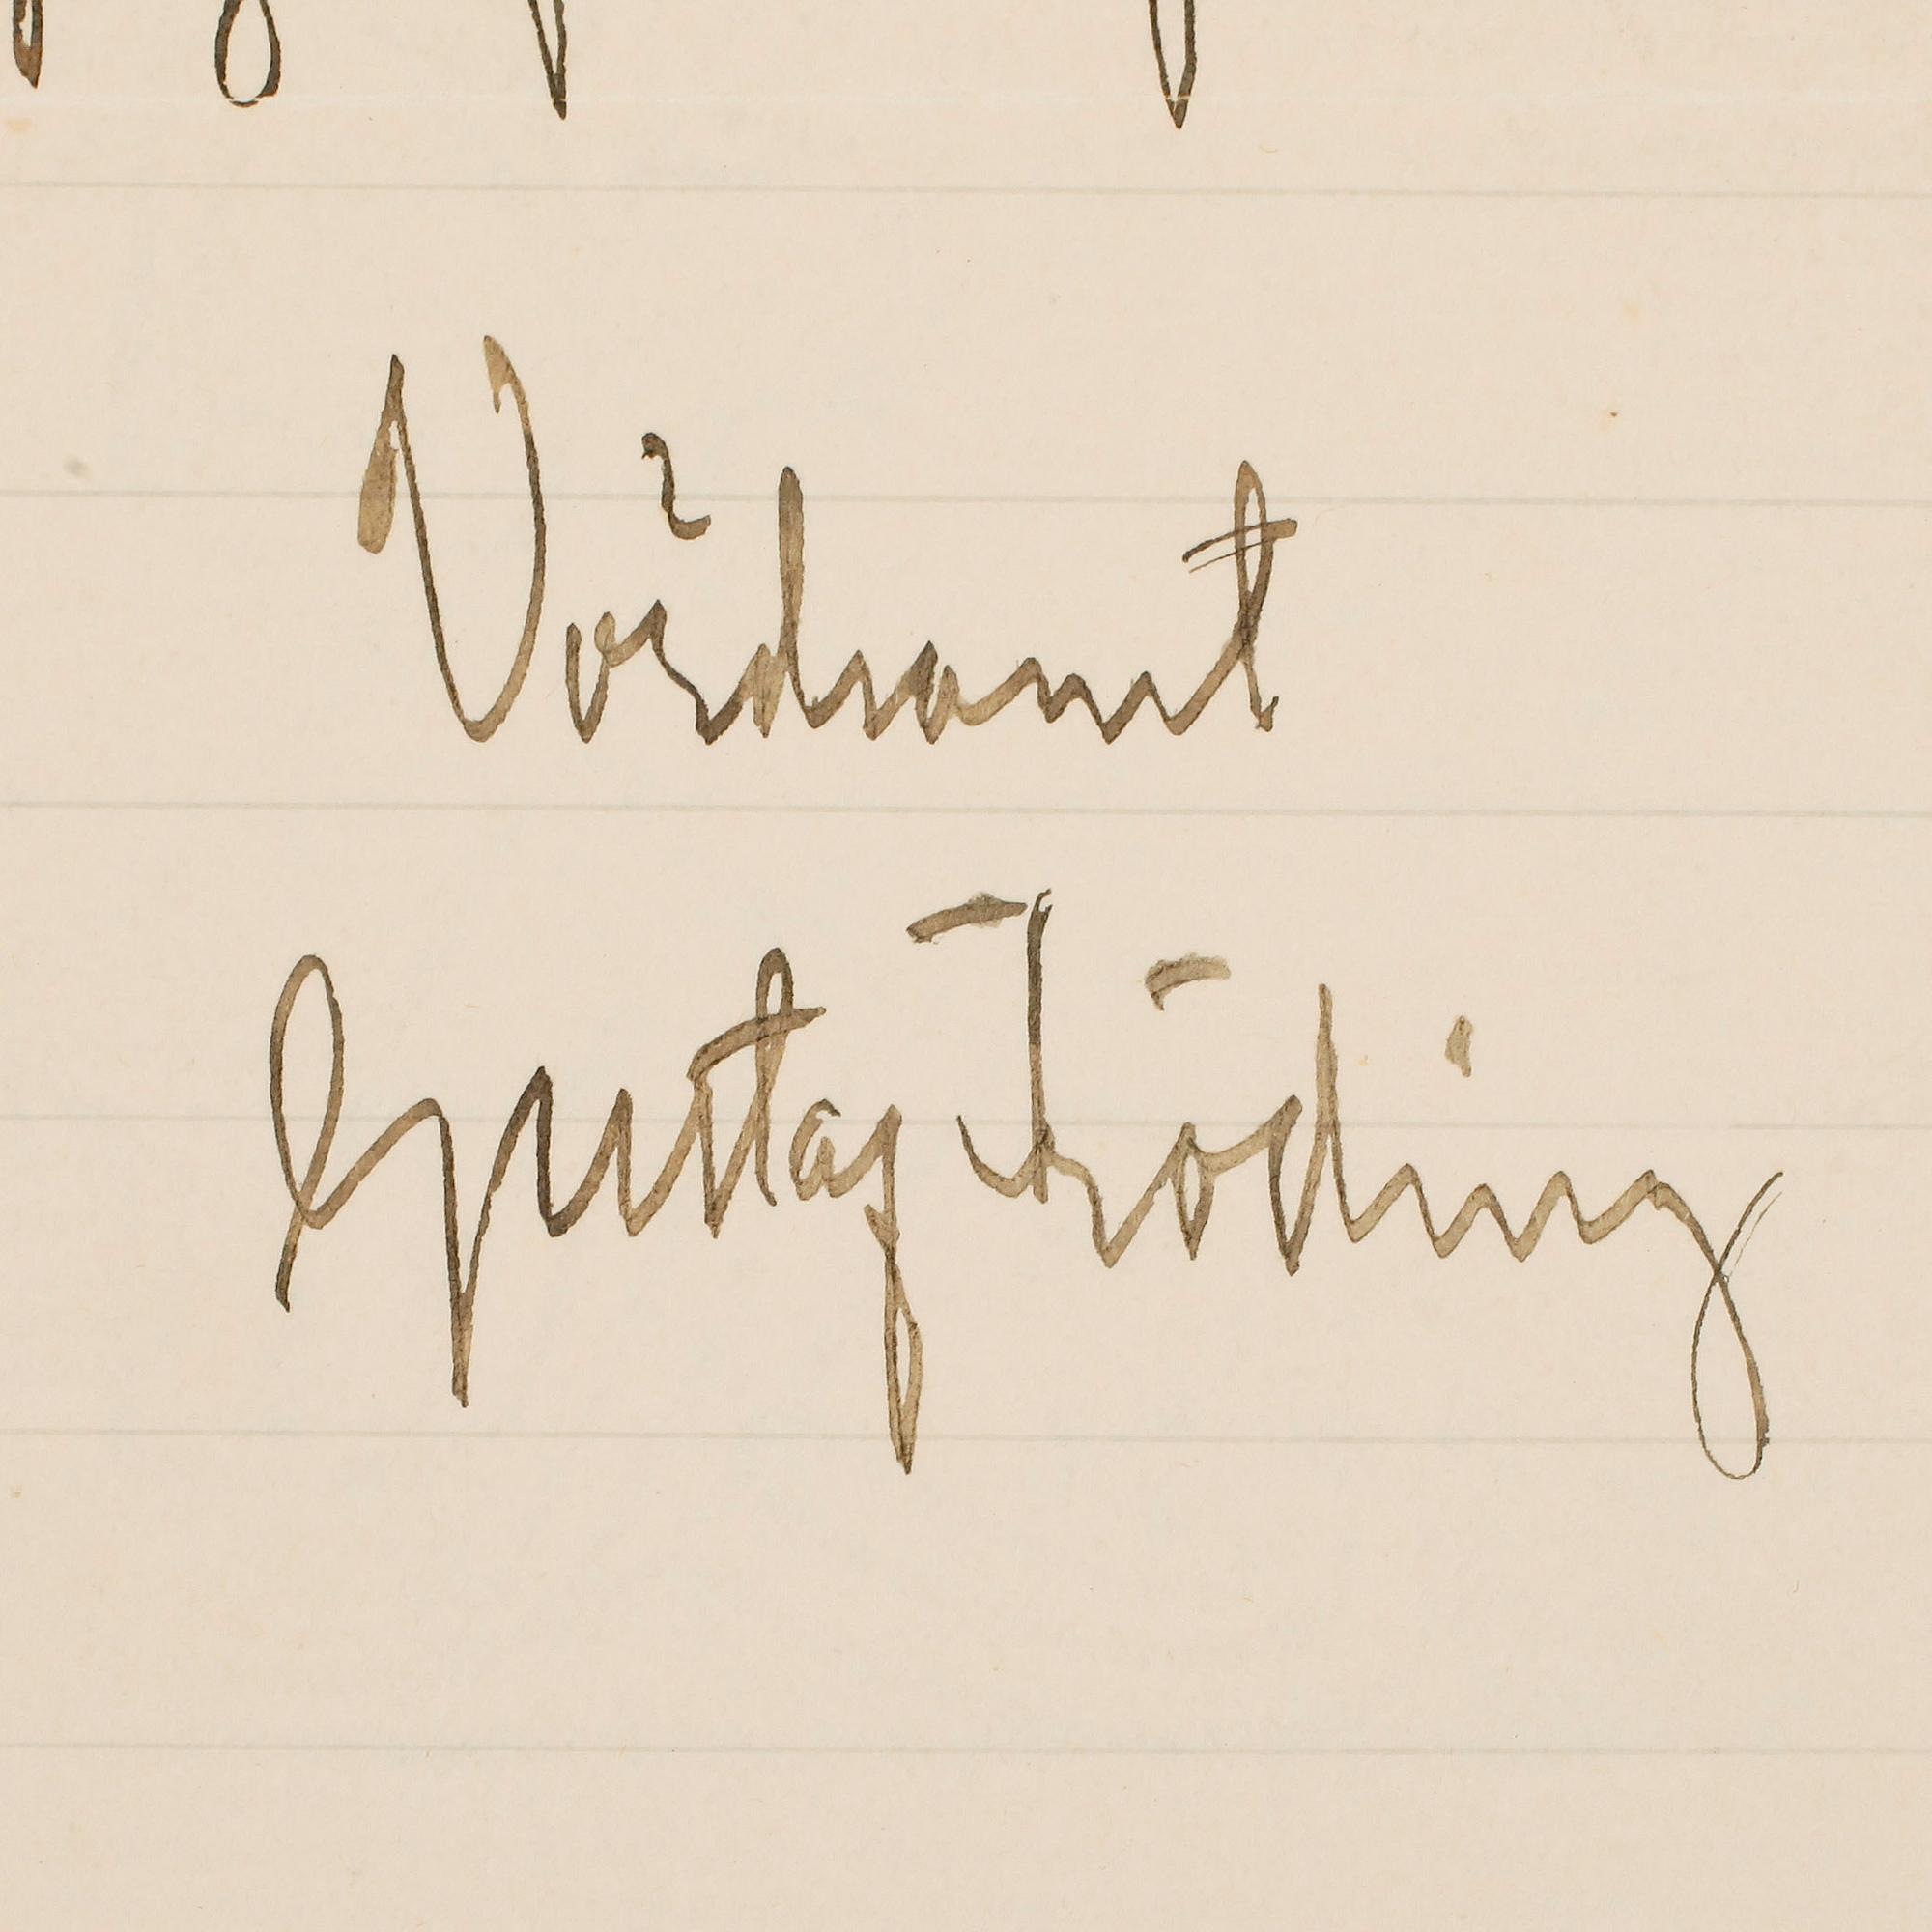 Vördsamt
Gustaf Fröding